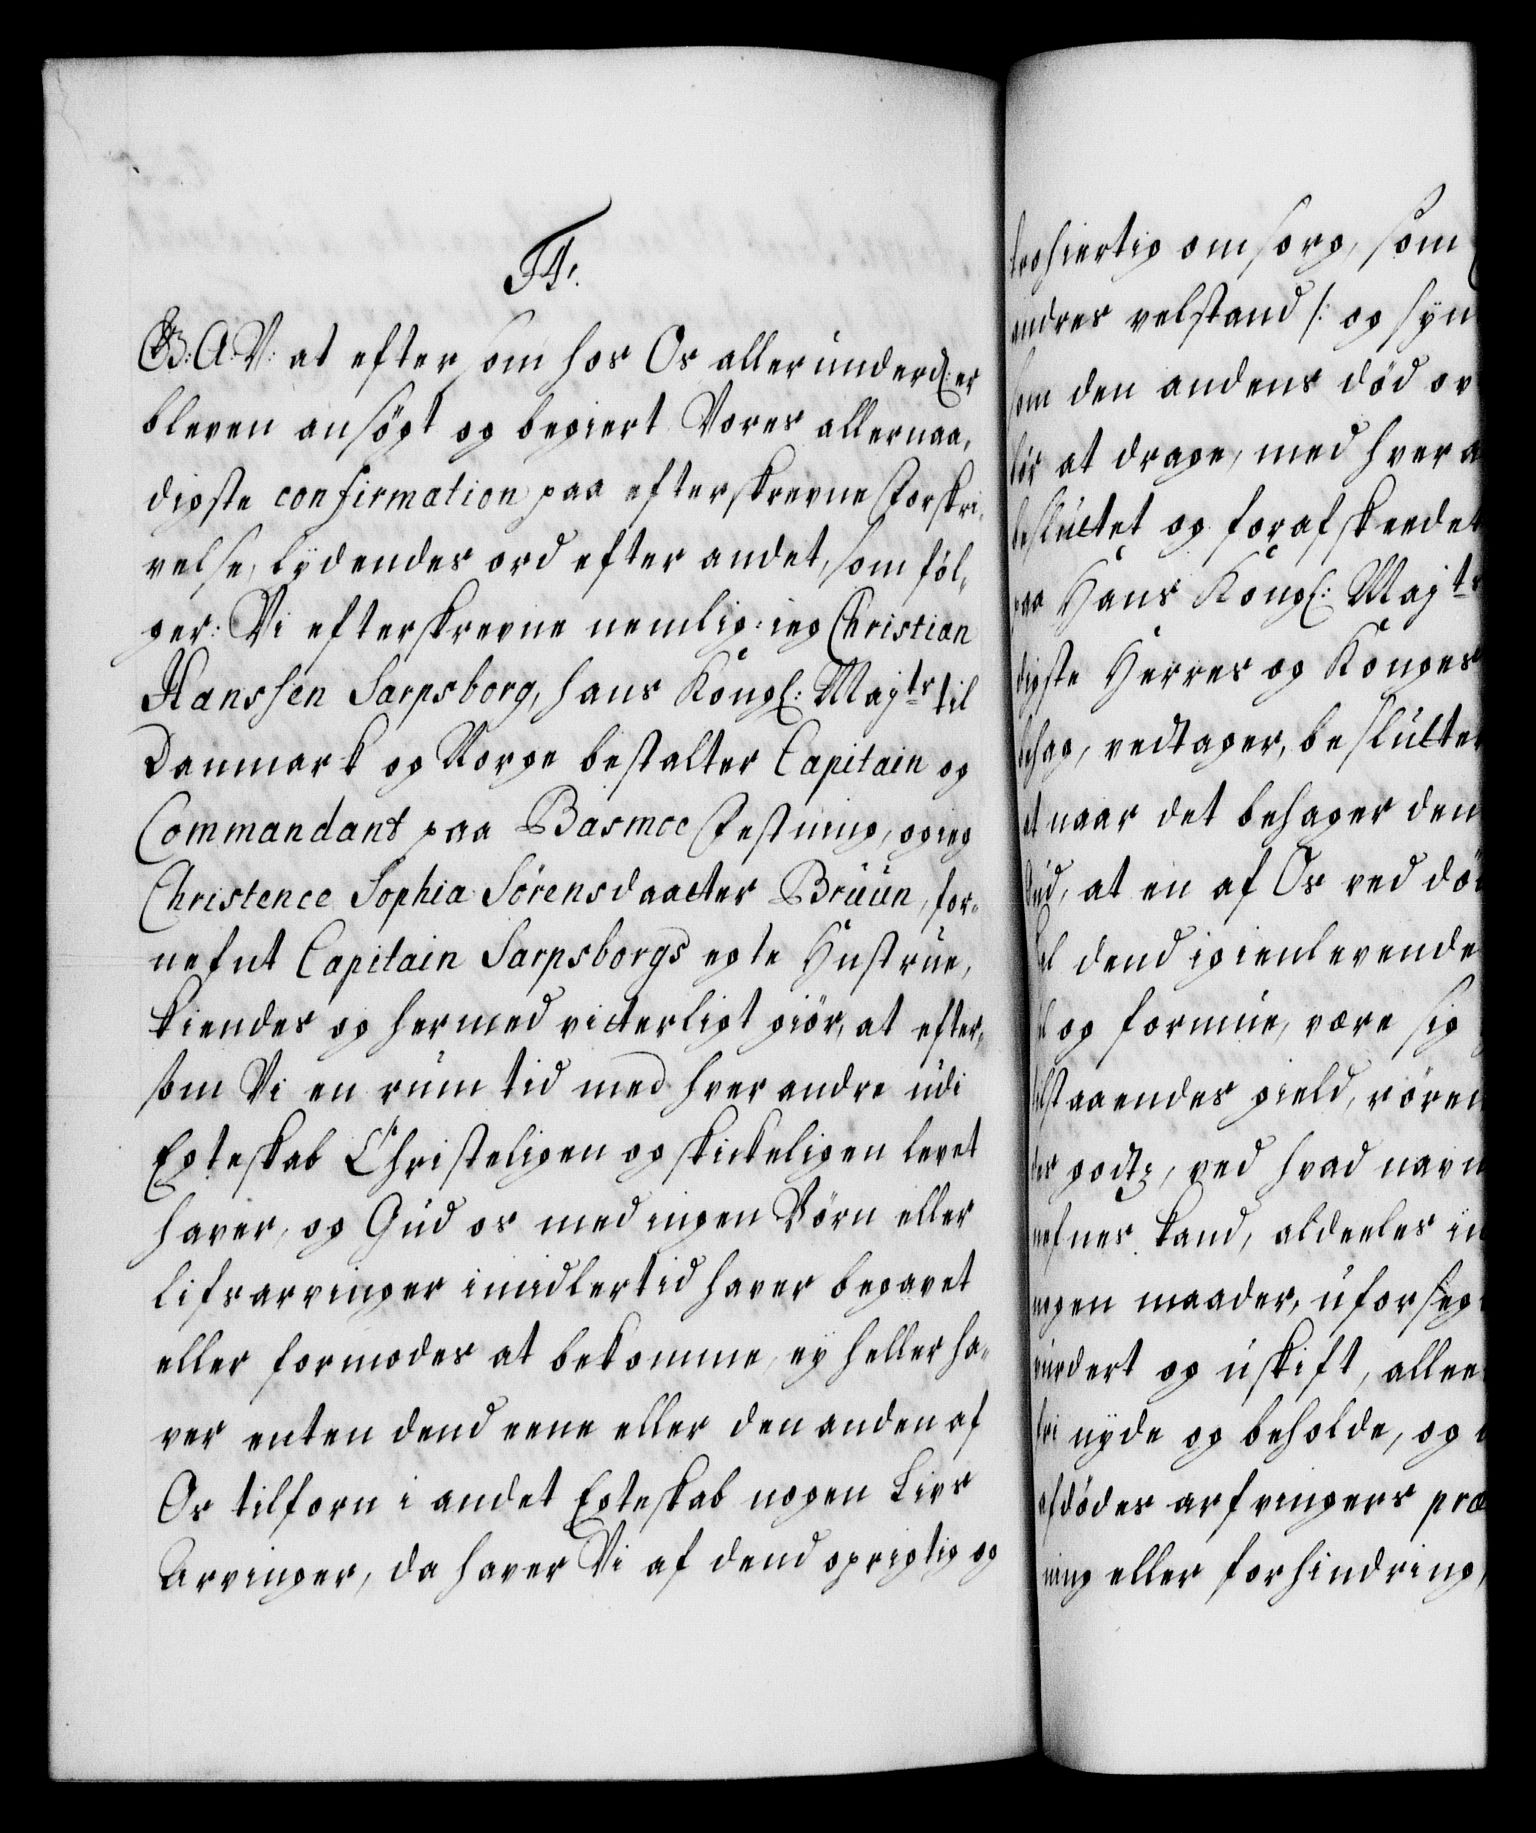 F4.
G: A: V: at eftersom hos Os allerunderd: er
bleven ansögt og begiert Vores allernaa,,
digste confirmation paa efterskrevne Forskri,,
velse, lydendes ord efter andet, som föl,,
ger: Vi efterskrevne nemlig: ieg Christian
Hanssen Sarpsborg, hans Kongl: Mayts til
Danmark og Norge bestalter Capitain og
Commandant paa Basmoe Festning, og ieg
Christence Sophia Sörensdaatter Bruun, for,,
nefnt Capitain Sarpsborgs egte Hustrue,
kiendes og hermed vitterligt giör, at efter,,
som Vi en rum tid med hverandre udi
Egteskab Christeligen og skickeligen levet
haver, og Gud os med ingen Börn eller
lifsarvinger imidlertid haver begavet
eller formodes at bekomme, ey heller ha,,
ver enten dend eene eller den anden af
Os tilforn i andet Egteskab nogen Livs
Arvinger, da haver Vi af dend oprigtig og
trohiertig omsorg, som
andres velstand /: og syn
som den andens död ov
lir at drage, med hver a
besluttet og forafskeedet
paa Hans Kongl: Mayts
digste Herres og Konges
behag, vedtager, beslutter
at naar det behager den
Gud, at en af Os ved dö
skal dend igienlevende
og formue, være sig
tilstaaendes gield, rören
des godtz, ved hvad navn
nefnes kand, aldeeles in
ingen maader, uforseg
vurdert og uskift, allee
fri nyde og beholde, og
afdödes arfvingers præ
ning eller forhindring,